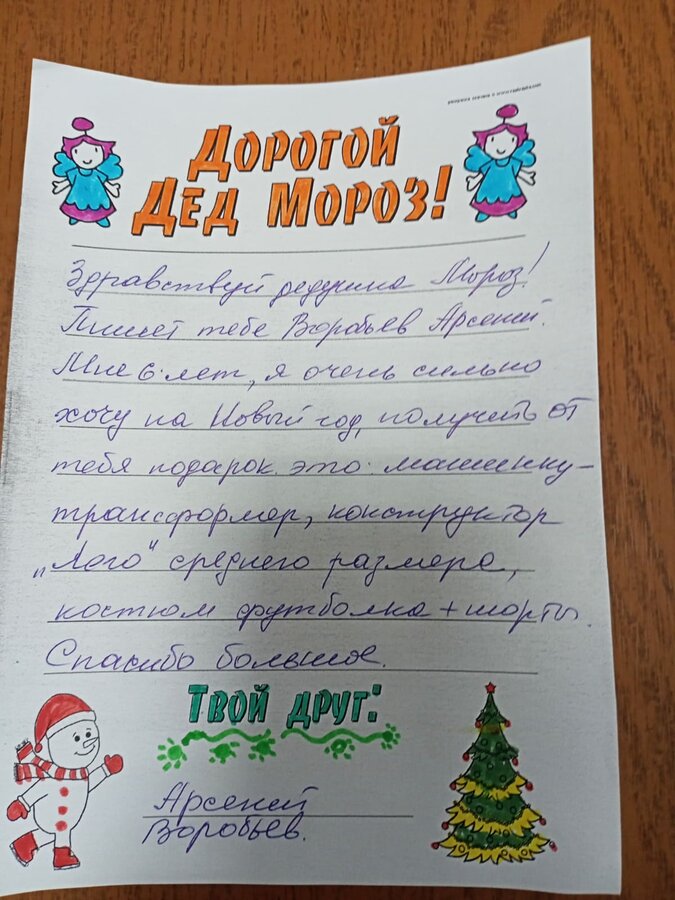 ДОРОГОЙ
ДЕД МОРОЗ!
Здравствуй дедушка Мороз!
Пишет тебе Воробьев Арсений.
Мне 6 лет, я очень сильно
хочу на Новый год, получить от
тебя подарок это: машинку-
трансформер, конструктор
„Лего“ среднего размера,
костюм футболка + шорты.
Спасибо большое.
ТВОЙ ДРУГ:
Арсений
Воробьев.